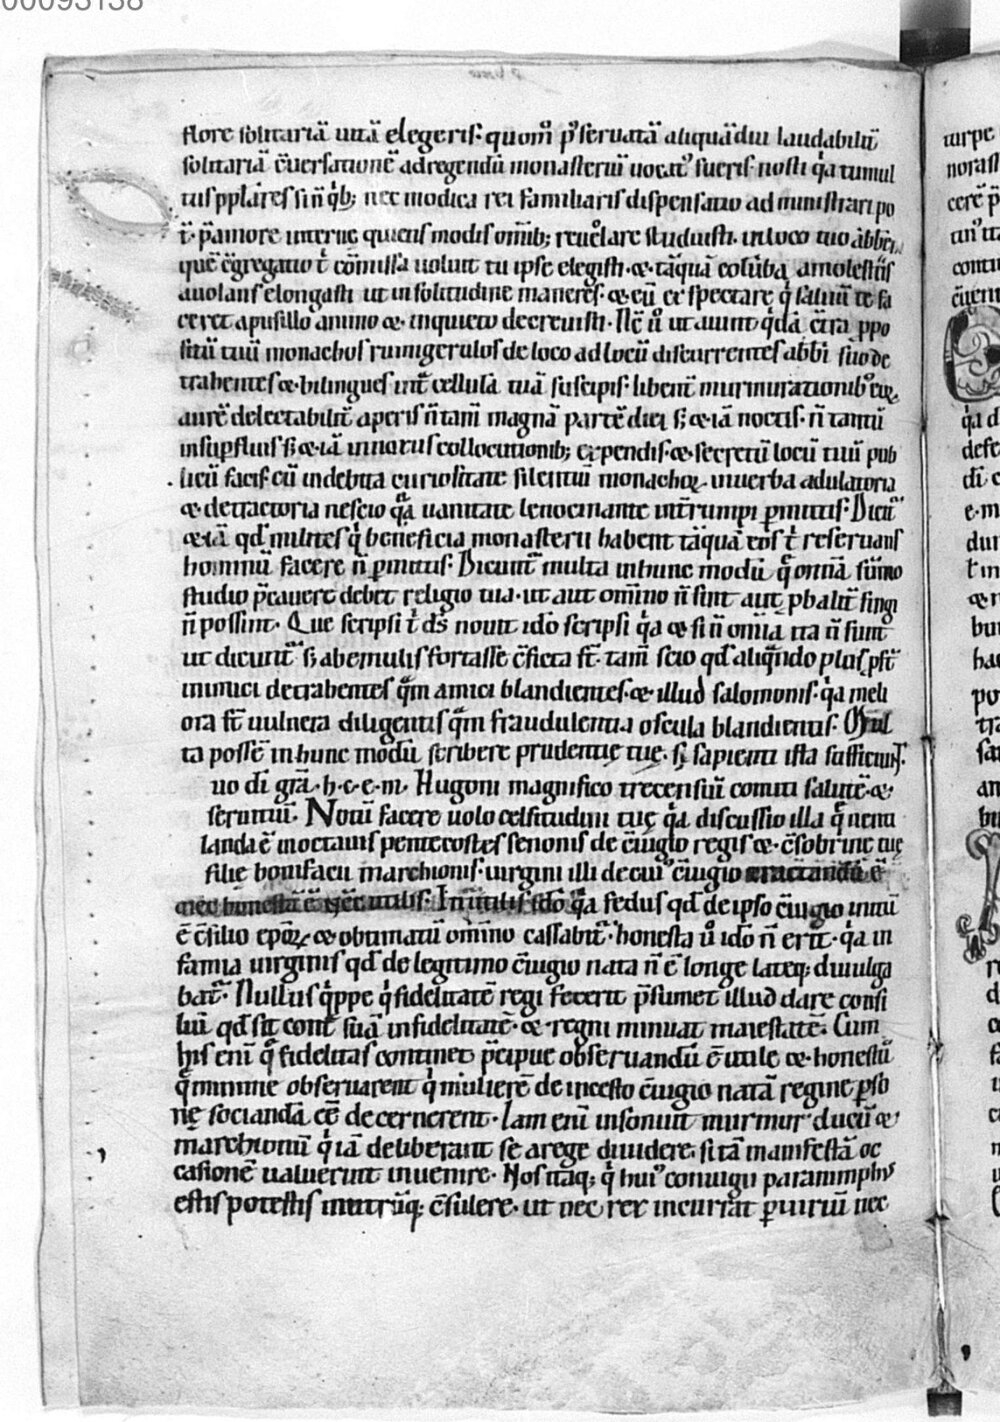 00093138
flore solitariā uitā elegeris· quom̄ p̄seruatā aliquādiu laudabilit̄
solitariā c̄uersationē ad regendū monasteriū uocat᷒ fueris· nosti q̇a tumul
tus pplāres sin̄ q̇b; nec modica rei familiaris dispensatio administrari po
t̄· p̄ amore interne quietis modis om̄ib; reuelare studuisti· in loco tuo abbē
quē c̄gregatio t̄ cōmissa uoluit tu ipse elegisti· & tāquā colūba a molestiis
auolans elongasti ut in solitudine maneres· & eū exspectare q̇ saluū te fa
ceret a pusillo animo & inquieto decreuisti· Nc̄ ū ut aiunt q̇dā c̄tra ppo
sitū tuū monachos rumigerulos de loco ad locū discurrentes abbi suo de
trahentes & bilingues int̄ cellulā tuā suscipis· libent̄ murmurationib᷒ eoꝝ
aurē delectabilit̄ aperis n̄ tam̄ magnā partē diei s; & iā noctis· n̄ tantū
in supfluis s; & iā in noxiis collocutionib; expendis· & secretū locū tuū pub
licū facis· cū indebita curiositate silentiū monachoꝝ in uerba adulatoria
& detractoria nescio qͣ uanitate lenocinante int̄rumpi p̄mittis· Dicūt
& iā qd̄ milites q̇ beneficia monasterii habent tāquā eos t̄ reseruans
hominiū facere n̄ p̄mittis· Dicunt̄ multa in hunc modū q̄ omīa sūmo
studio p̄cauere debet religio tua· ut aut om̄ino n̄ sint aut pbabilit̄ fingi
n̄ possint· Que scripsi t̄ ds̄ nouit ido scripsi q̇a & si n̄ om̄ia ita n̄ sunt
ut dicunt̄ s; ab emulis fortasse c̄ficta st̄· tam̄ scio qd̄ aliqn̄do plus p̄st̄
inimici detrahentes qͣm amici blandientes· & illud salomonis· q̇a meli
ora st̄ uulnera diligentis qͣm fraudulenta oscula blandientis· Mul
ta possē in hunc modū scribere prudentię tuę· s; sapienti ista sufficiunt·
uo di grā· h· c· e· m· Hugoni magnifico trecensiū comiti salutē· &·
seruitiū· Notū facere uolo celsitudini tuę q̇a discussio illa q̄ uenti
landa ē in octauis pentecostes senonis de c̄iugio regis & c̄sobrinę tuę
filię bonifacii marchionis· uirgini illi de cui᷒ c̄iugio tractandū ē
nec honesta ē nec utilis· Inutilis· ido q̇a fedus qd̄ de ipso c̄iugio initū
ē c̄silio epōꝝ & obtimatū om̄ino cassabit̄· honesta ū ido n̄ erit· q̇a in
famia uirginis qd̄ de legitimo c̄iugio nata n̄ ē longe lateq; diuulga
bat̄· Nullus q̇ppe q̇ fidelitatē regi fecerit p̄sumet illud dare consi
liū qd̄ sit cont̄ suā infidelitatē· & regni minuat maiestatē· Cum
his eni q̄ fidelitas continet p̄cipue obseruandū ē utile & honestū
q̄ minime obseruarent q̇ mulierē de incesto c̄iugio natā regine pso
nę sociandā eē decernerent· Iam eni insonuit murmur ducū &
marchionū q̇ iā deliberant se a rege diuidere· si tā manifestā oc
casionē ualuerint inuenire· Nos itaq; q̇ hui᷒ coniugii paranimphus
estis potestis in utrūq; c̄sulere· ut nec rex incurrat p̄iuriū nec